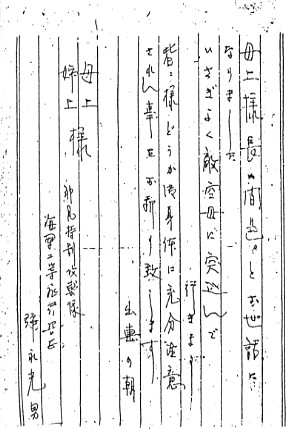 母上様長い間色々と御世話に
なりました
いさぎよく敵空母に突込んで
行きます
皆々様どうか御身体に充分注意
され ん事を御祈り致します
出撃の朝
母上
姉上 様
神風特別攻撃隊
海軍二等飛行兵曹
光男